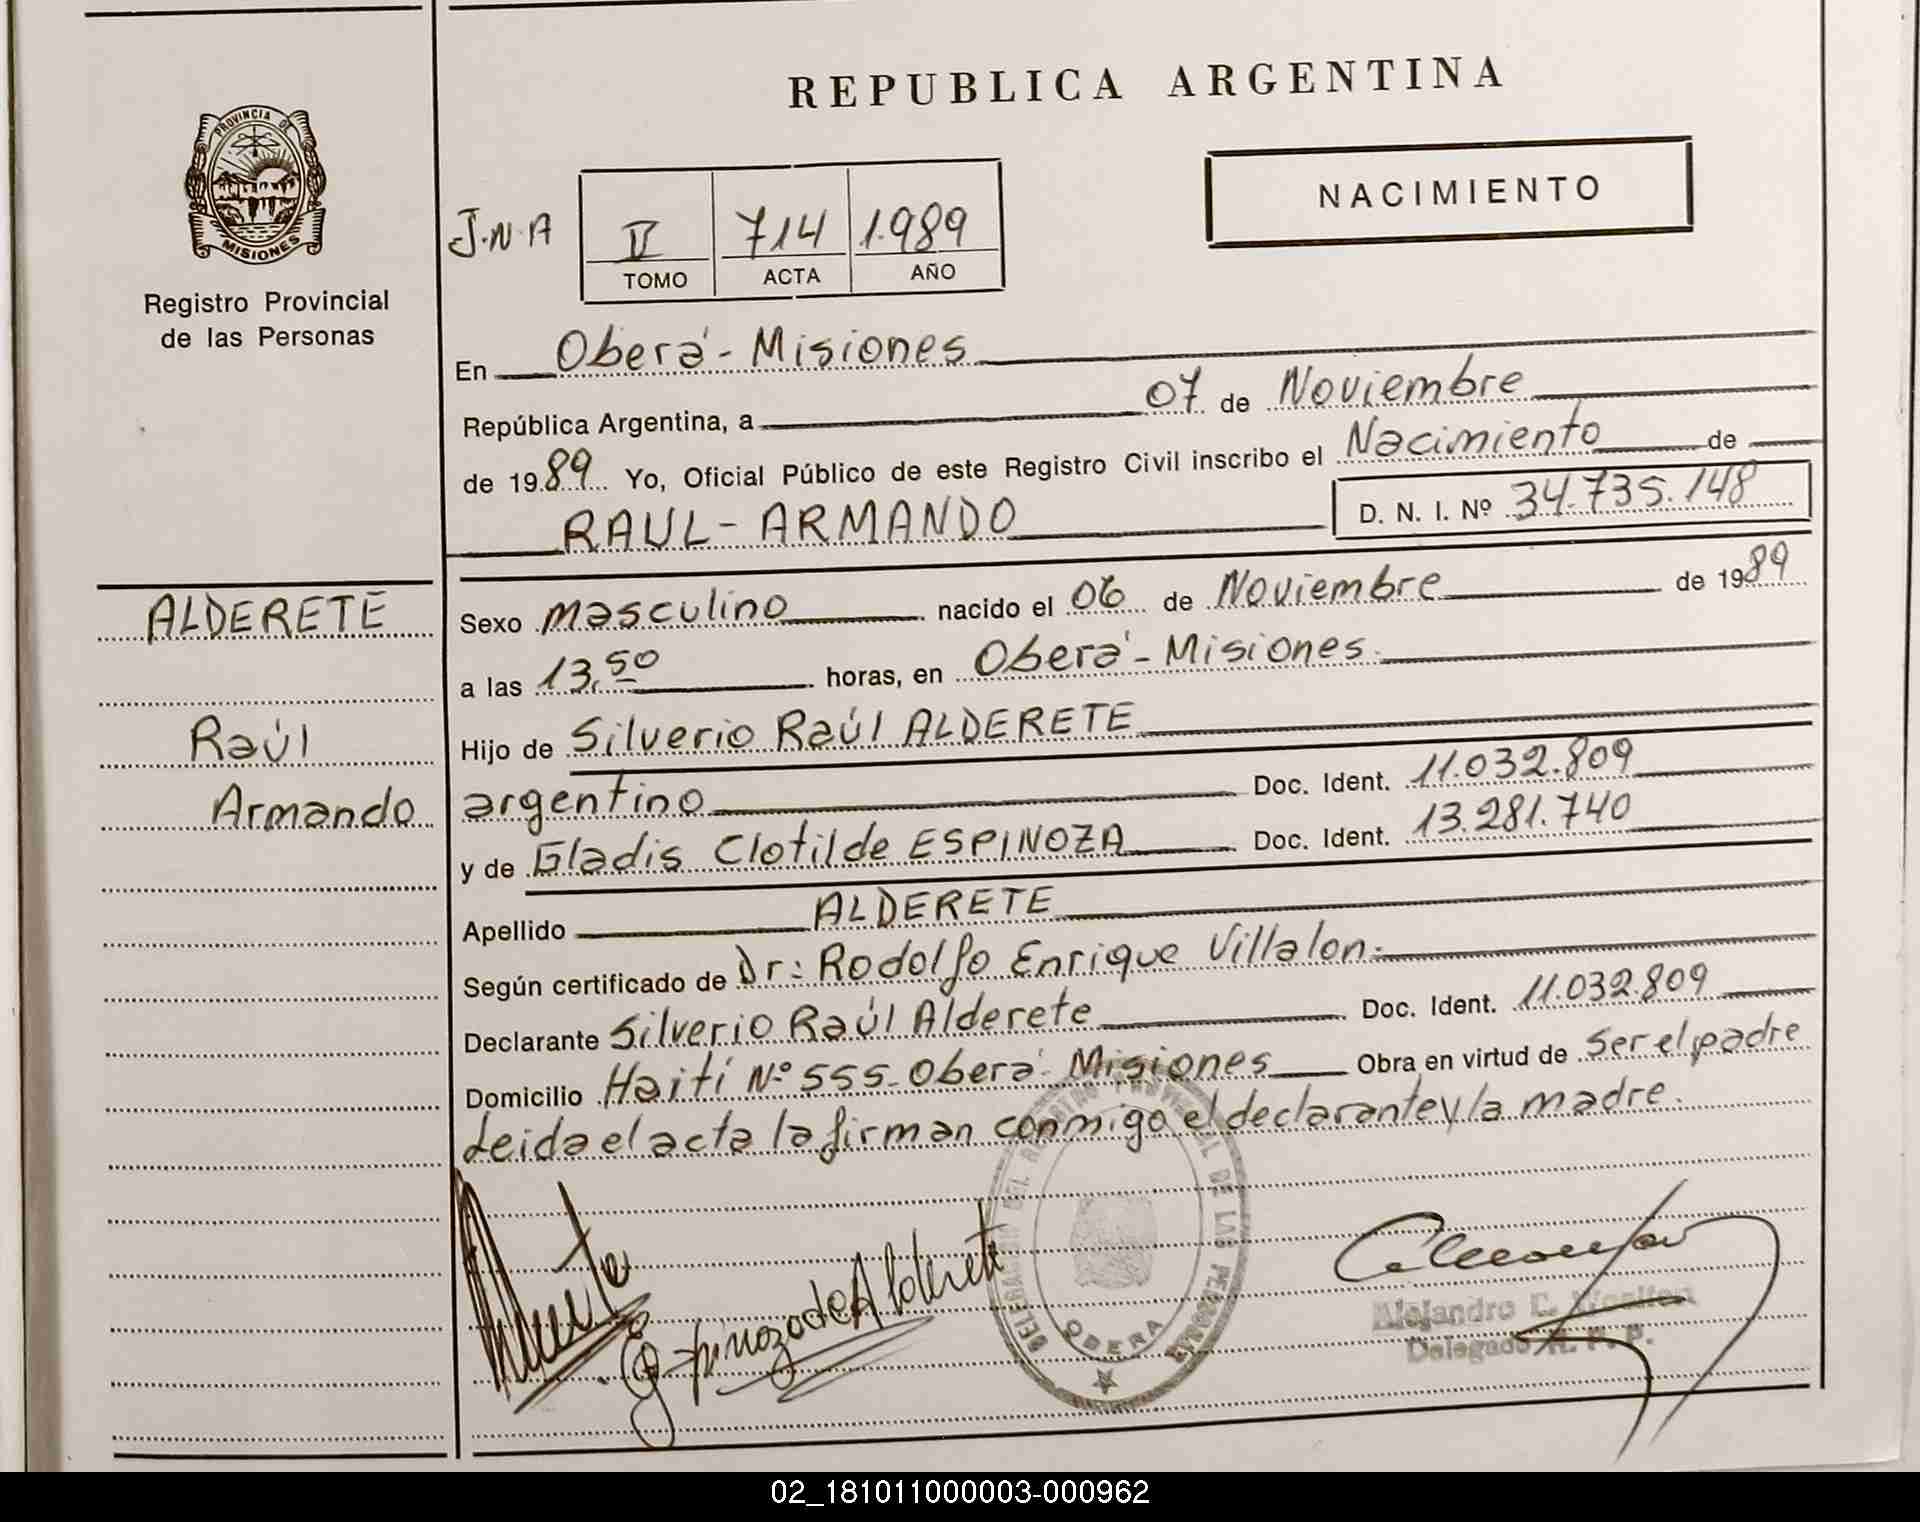 REPUBLICA ARGENTINA
PROVINCIA DE
MISIONES
Registro Provincial
de las Personas
NACIMIENTO
J.N.A
II 714 1.989
TOMO ACTA AÑO
En Oberá - Misiones
República Argentina, a 07 de Noviembre
de 1989 Yo, Oficial Público de este Registro Civil inscribo el Nacimiento de
RAUL - ARMANDO D. N. I. Nº 34.735.148
ALDERETE
Raúl
Armando
Sexo masculino nacido el 06 de Noviembre de 1989
a las 13,50 horas, en Oberá - Misiones.
Hijo de Silverio Raúl ALDERETE
argentino Doc. Ident. 11.032.809
y de Gladis Clotilde ESPINOZA Doc. Ident. 13.281.740
Apellido ALDERETE
Según certificado de Dr: Rodolfo Enrique Villalon.
Declarante Silverio Raúl Alderete Doc. Ident. 11.032.809
Domicilio Haití Nº 555 - Oberá - Misiones Obra en virtud de ser el padre
Leida el acta la firman conmigo el declarante y la madre.
DELEGACION DEL REGISTRO PROVINCIAL DE LAS PERSONAS
OBERA
Espinoza de Alderete
Alejandro E.
Delegado R. P. P.
02_181011000003-000962